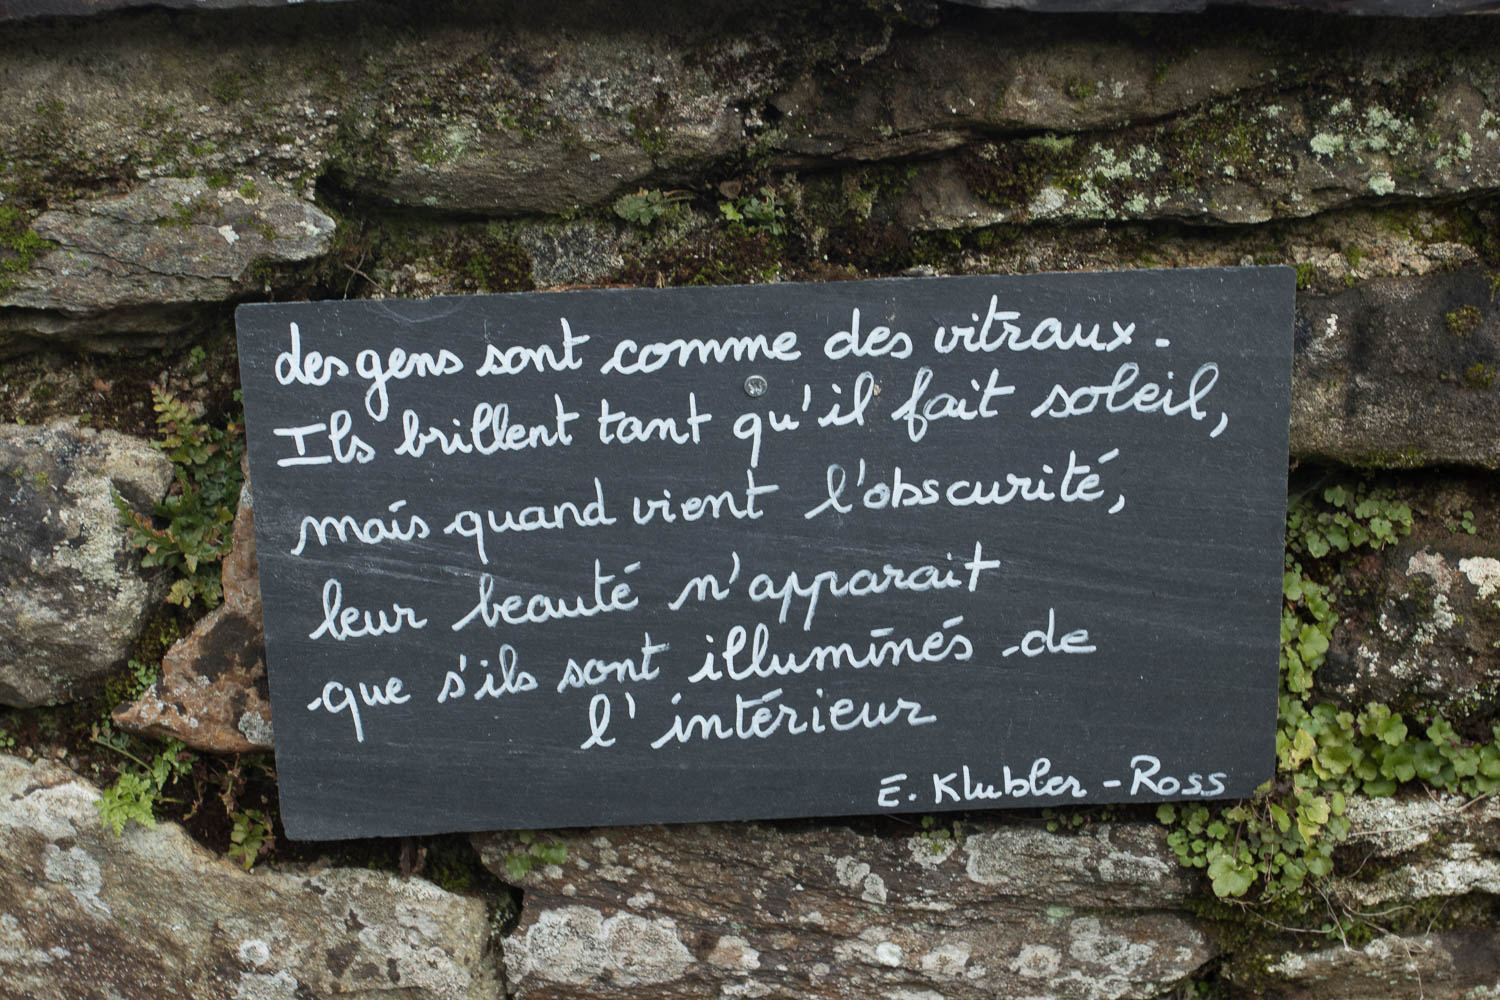 des gens sont comme des vitraux.
Ils brillent tant qu'il fait soleil,
mais quand vient l'obscurité,
leur beauté n'apparait
que s'ils sont illuminés de
l'intérieur
E. Klubler-Ross